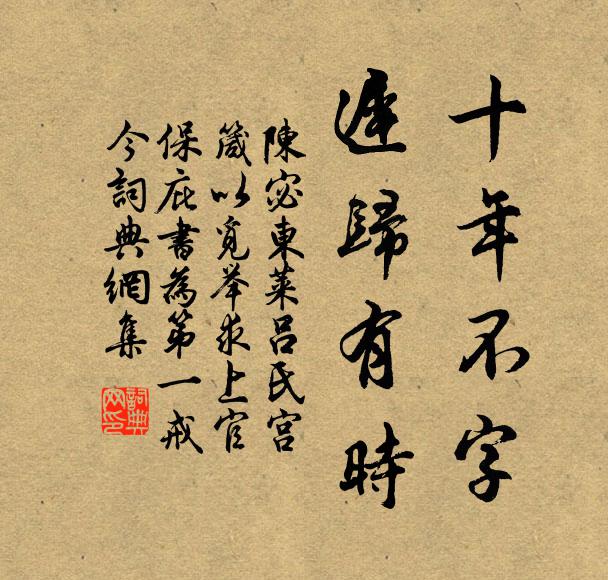 十年不字
遲歸有時
陳宓東萊呂氏宮
箴以覓舉求上官
保庇書為第一戒
今詞典網集
詞典
网印